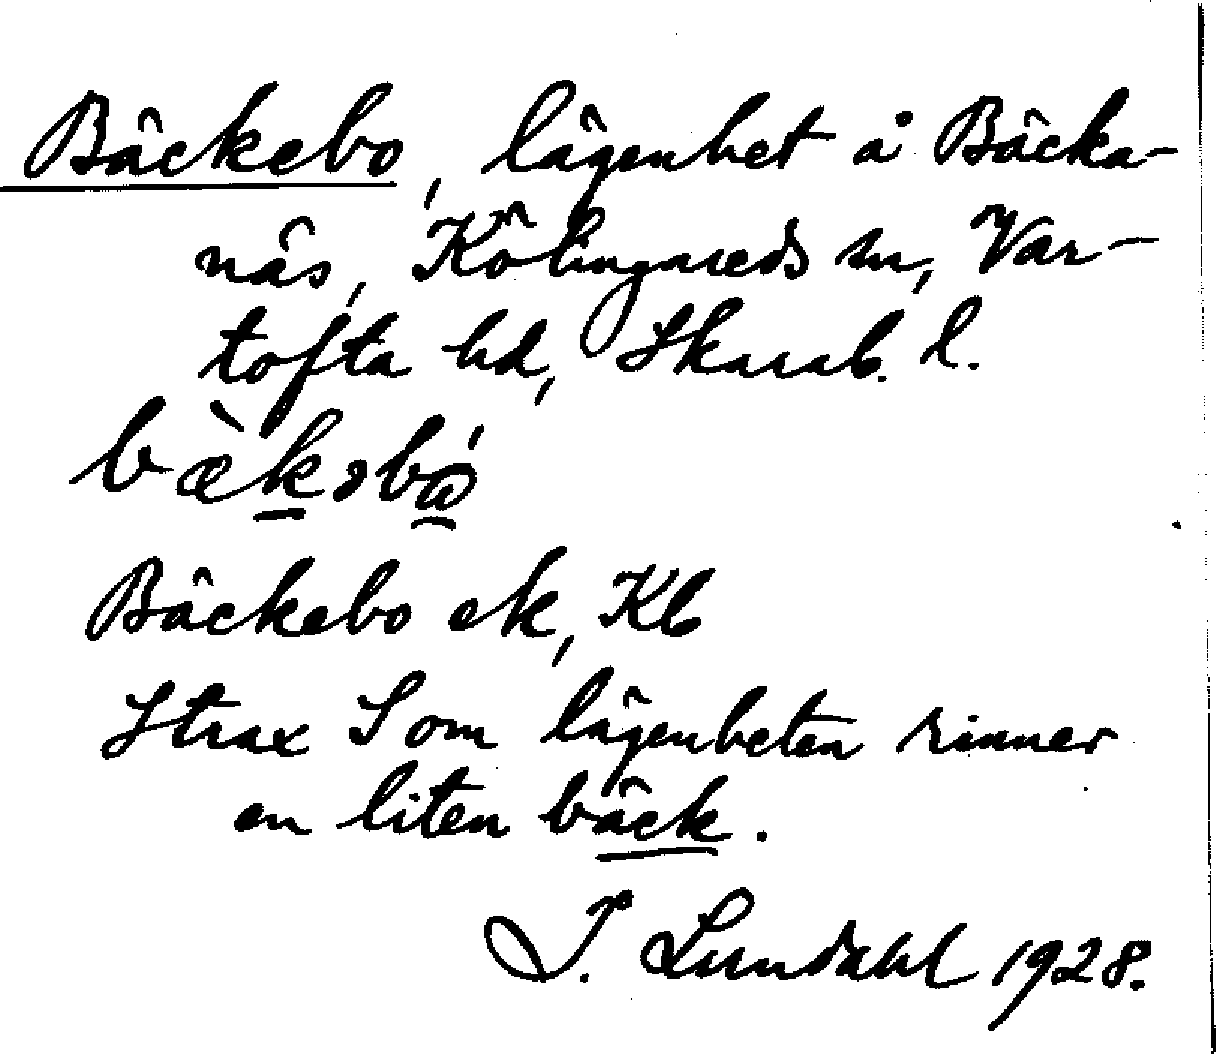 Bäckebo, lägenhet å Bäcka-
näs, Kölingareds sn, Var-
tofta hd, Skarab. l.
bæ̀kəbɷ́
Bäckebo ek, Kb
Strax S om lägenheten rinner
en liten bäck.
I. Lundahl 1928.